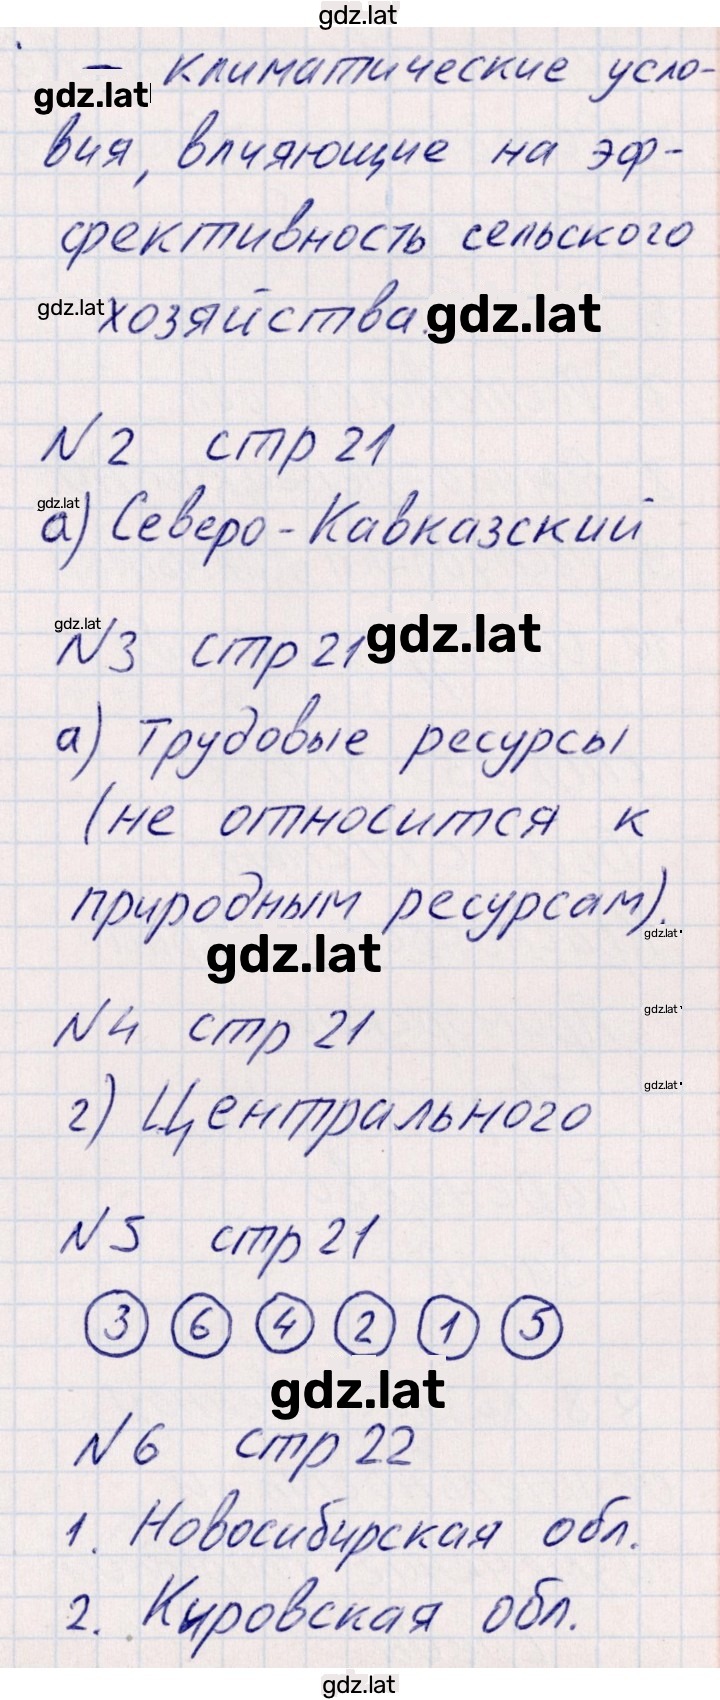 gdz.lat
– климатические усло-
gdz.lat
вия, влияющие на эф-
фективность сельского
gdz.lat хозяйства. gdz.lat
N 2 стр 21
gdz.lat
а) Северо-Кавказский
gdz.lat
N 3 стр 21 gdz.lat
а) Трудовые ресурсы
(не относится к
природным ресурсам).
gdz.lat
gdz.lat
N 4 стр 21
gdz.lat
gdz.lat
г) Центрального
N 5 стр 21
3 6 4 2 1 5
gdz.lat
N 6 стр 22
1. Новосибирская обл.
2. Кировская обл.
gdz.lat